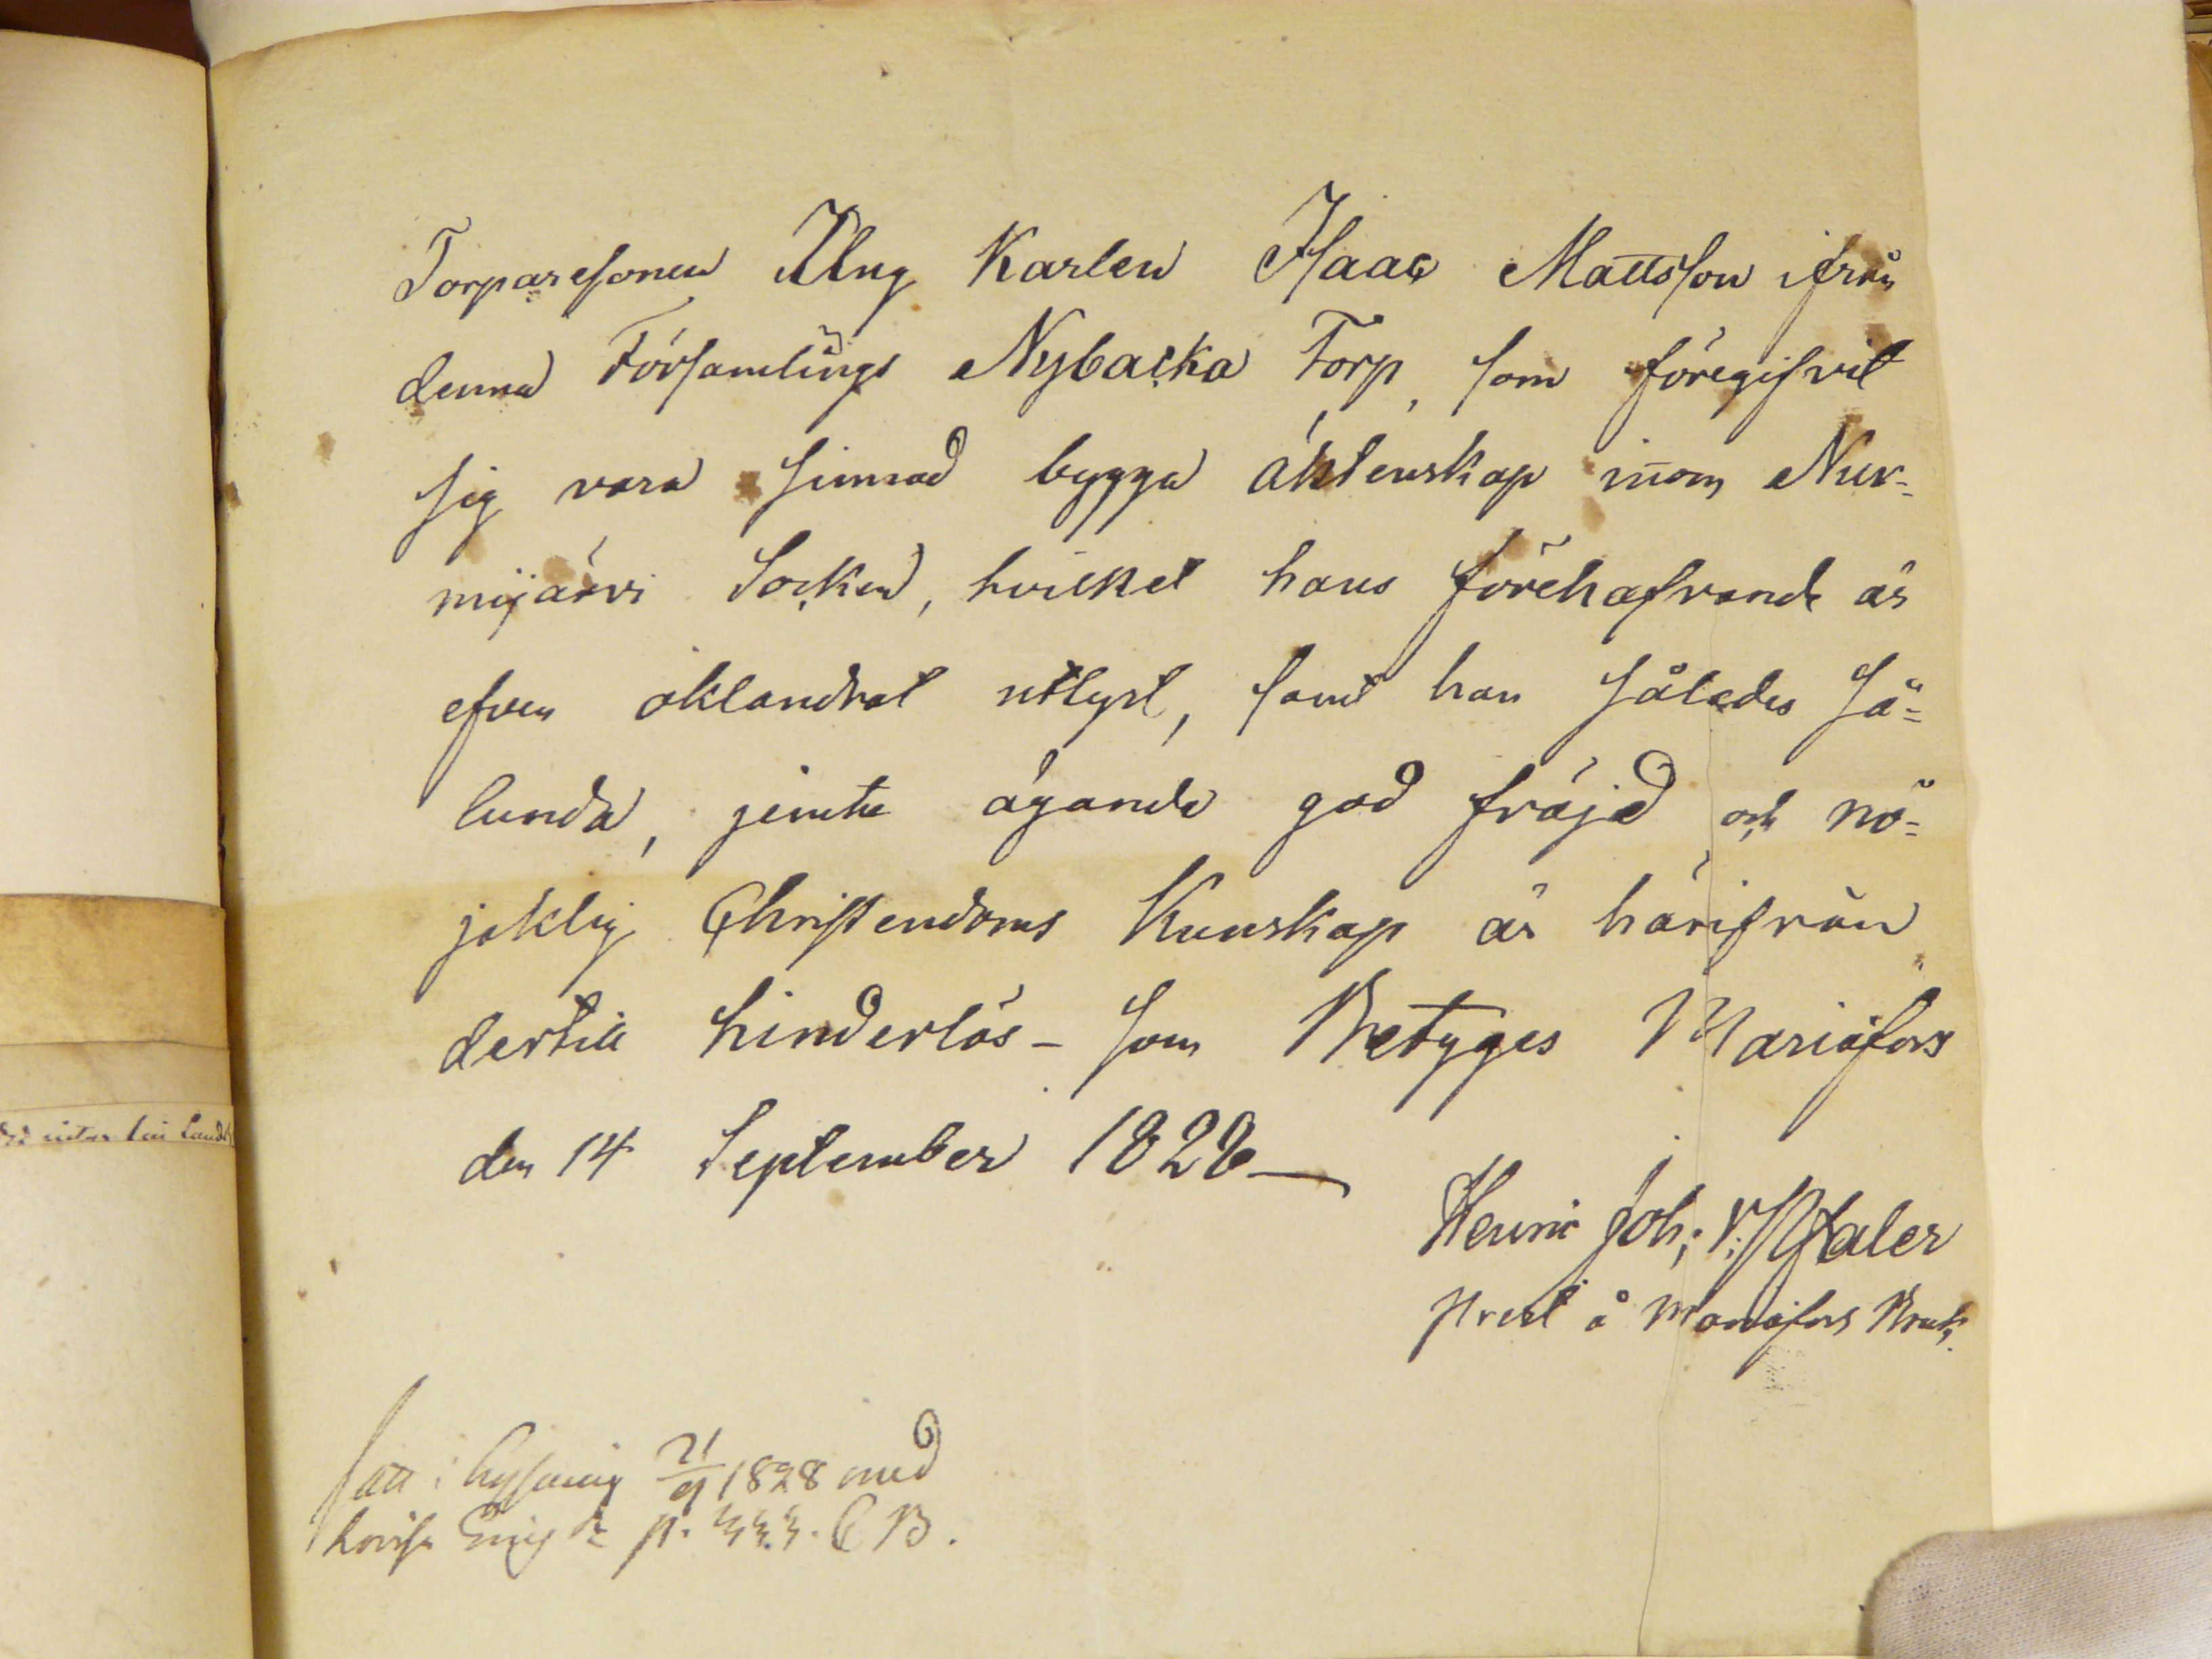 Torparesonen Ung Karlen Isaac Mattsson ifrån
denna Församlings Nybacka Torp, som föregifvit
sig vara sinnad bygga äktenskap inom Nur-
mijärvi Socken, hvilket hans förehafvande är
efven oklandrat utlyst, samt han således få-
lunda, jemte ägande god fräjd och nö-
jaktig Christendoms Kunskap är härifrån
dertill hinderlös - som Betyges Mariæfors
den 14 September 1828
Henric Joh:
Prest å Mariæfors Bruk.
Satt i lysning 21/9 1828 med
Lovisa p. 333. CB.